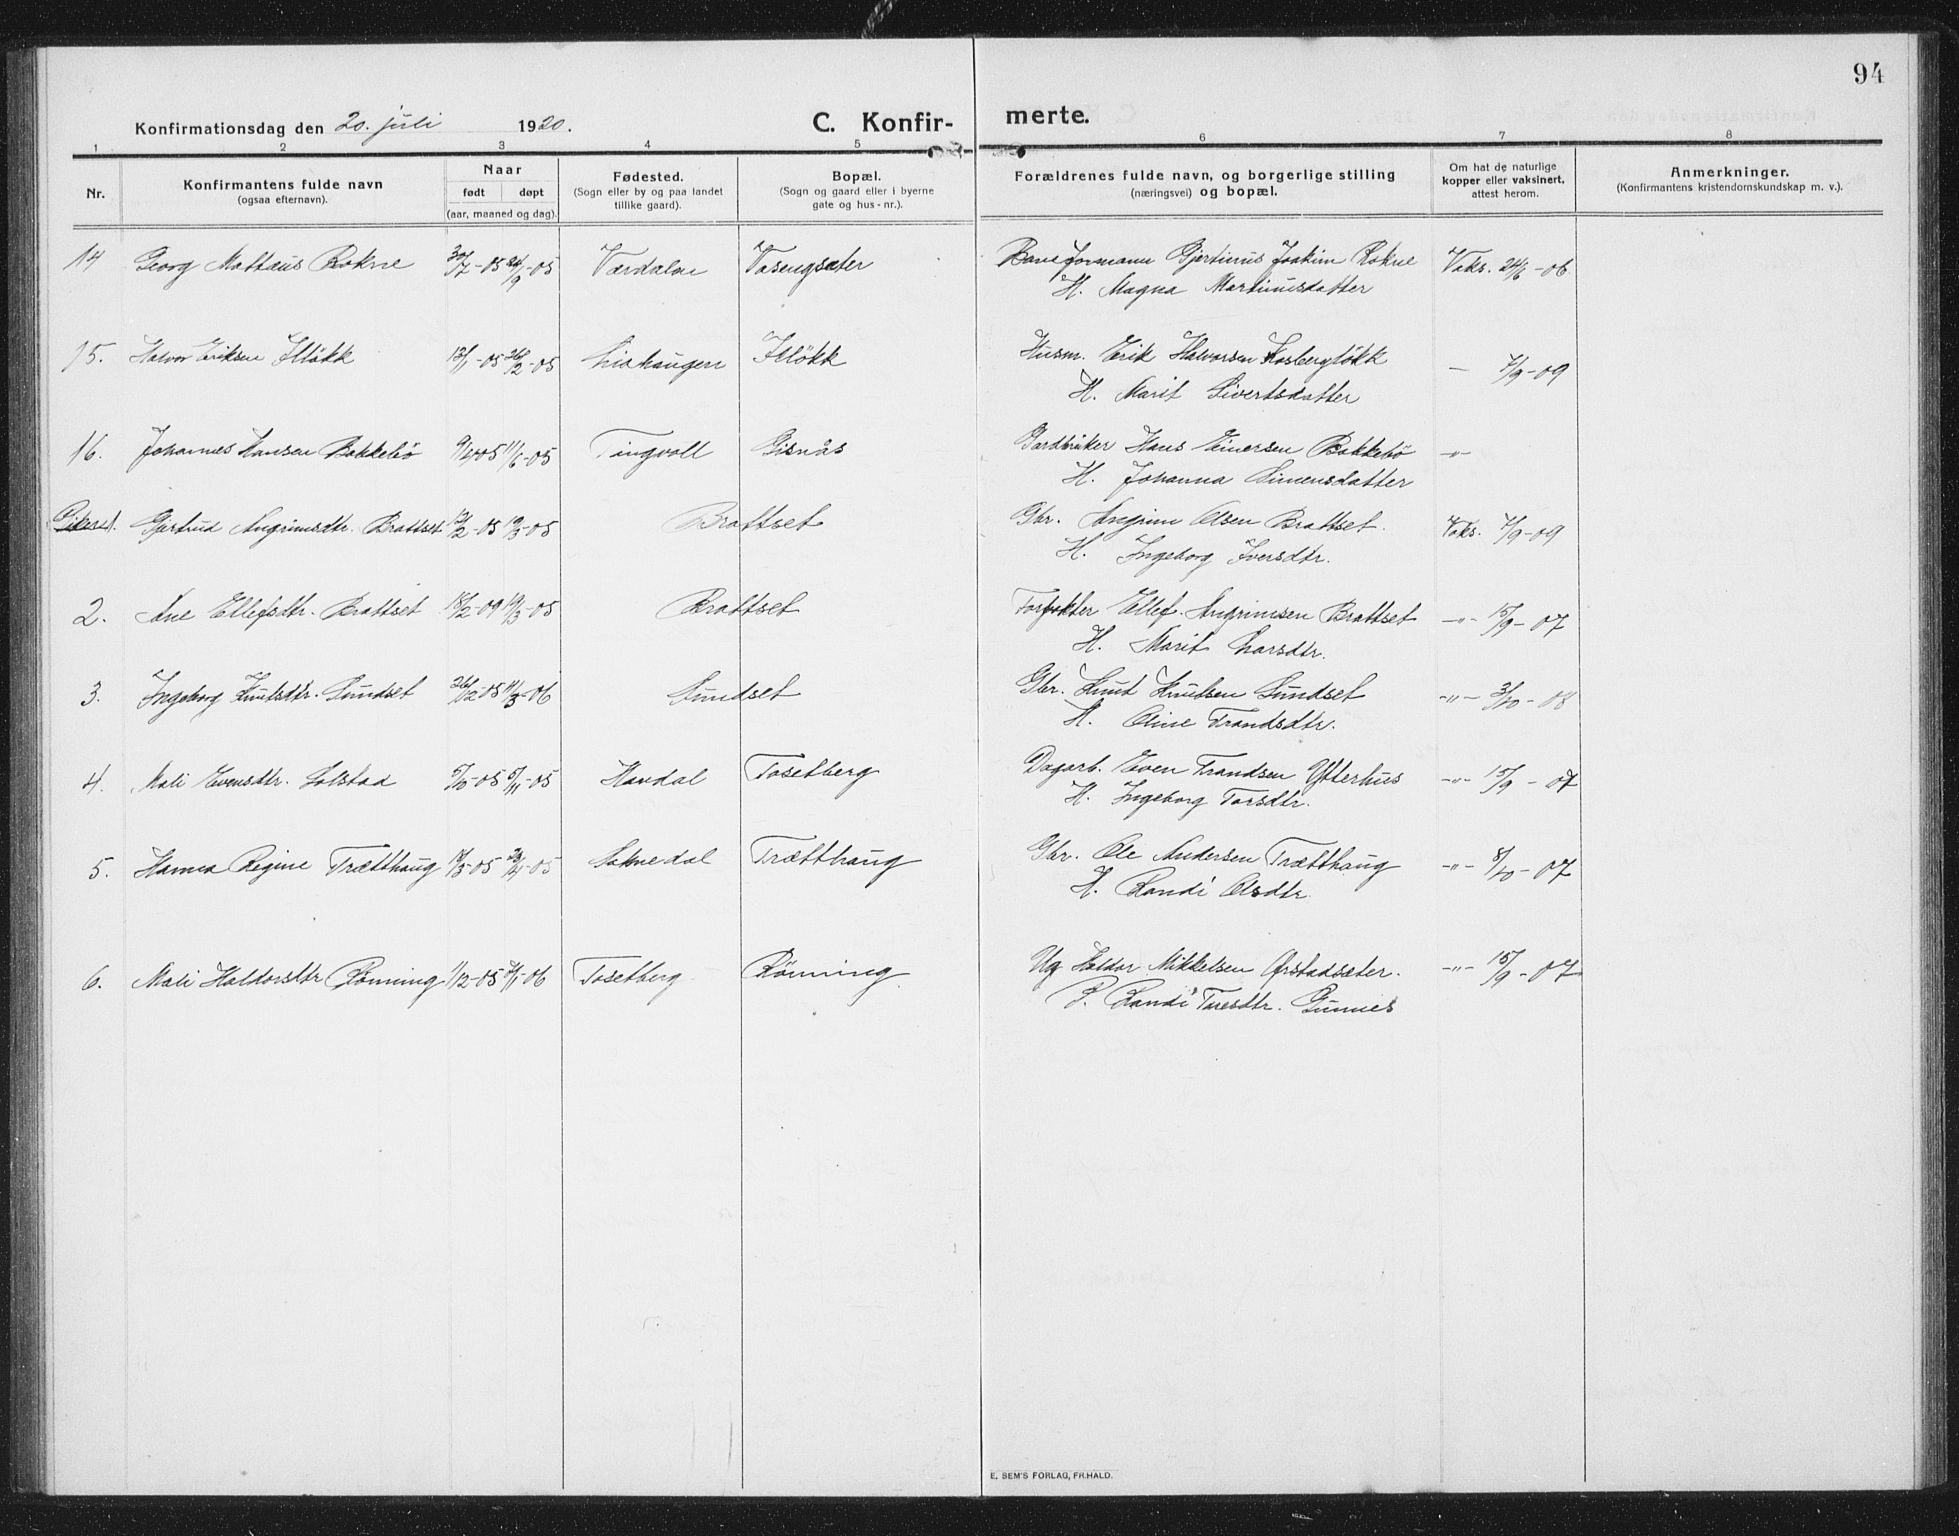 94
Konfirmationsdag den 20. juli 1920.
C. Konfir-
merte.
1 2 3 4 5 6 7 8
Nr.
Konfirmantens fulde navn
(ogsaa efternavn).
Naar
født døpt
(aar, maaned og dag).
Fødested.
(Sogn eller by og paa landet
tillike gaard).
Bopæl.
(Sogn og gaard eller i byerne
gate og hus-nr.).
Forældrenes fulde navn, og borgerlige stilling
(næringsvei) og bopæl.
Om hat de naturlige
kopper eller vaksinert,
attest herom.
Anmerkninger.
(Konfirmantens kristendomskundskap m. v.).
14 Georg Mattæus Rokne 30/7-05 24/9-05 Værdalen Vasengsæter Baneformann Gjertinus Joakim Rokne Vaks. 24/6-06
H. Magna Martinusdatter
15. Halvor Eriksen Illøkk 13/1-05 26/2-05 Liahaugen Illøkk Husm. Erik Halvorsen Kosbergløkk - 7/9-09
H. Marit Sivertsdatter
16. Johannes Hansen Bakkebø 9/4 05 11/6-05 Tingvoll Gisnås Gardbruker Hans Einersen Bakkebø -"-
H. Johanna Simensdatter
Piker 1. Gjertrud Angrimsdtr. Brattset 12/2-05 19/3-05 Brattset Gbr. Angrim Olsen Brattset. Vaks. 7/9-09
H. Ingeborg Iversdtr.
2. Ane Ellefsdtr. Brattset 18/2-09 19/3-05 Brattset Forpakter Ellef Angrimsen Brattset -"- 15/9-07
H. Marit Larsdtr.
3. Ingeborg Knutsdtr. Sundset 26/12-05 11/3-06 Sundset Gbr. Knut Knutsen Sundset -"- 3/10-08
H. Oline Trondsdtr.
4. Mali Evensdtr. Solstad 5/10-05 5/11-05 Havdal Tosetberg Dagarb. Even Trondsen Ytterhus -"- 15/9-07
H. Ingeborg Torsdtr.
5. Hanna Regine Trætthaug 18/3-05 23/4-05 Soknedal Trætthaug Gbr. Ole Andersen Trætthaug -"- 8/10-07
H. Randi Olsdtr.
6. Mali Haldorsdtr Rönning 1/12-05 7/1-06 Tosetberg Rönning. Ug Haldor Mikkelsen Ørstadsæter. -"- 15/9-07
P. Randi Toresdtr. Gunnes
E. SEM'S FORLAG, FR.HALD.